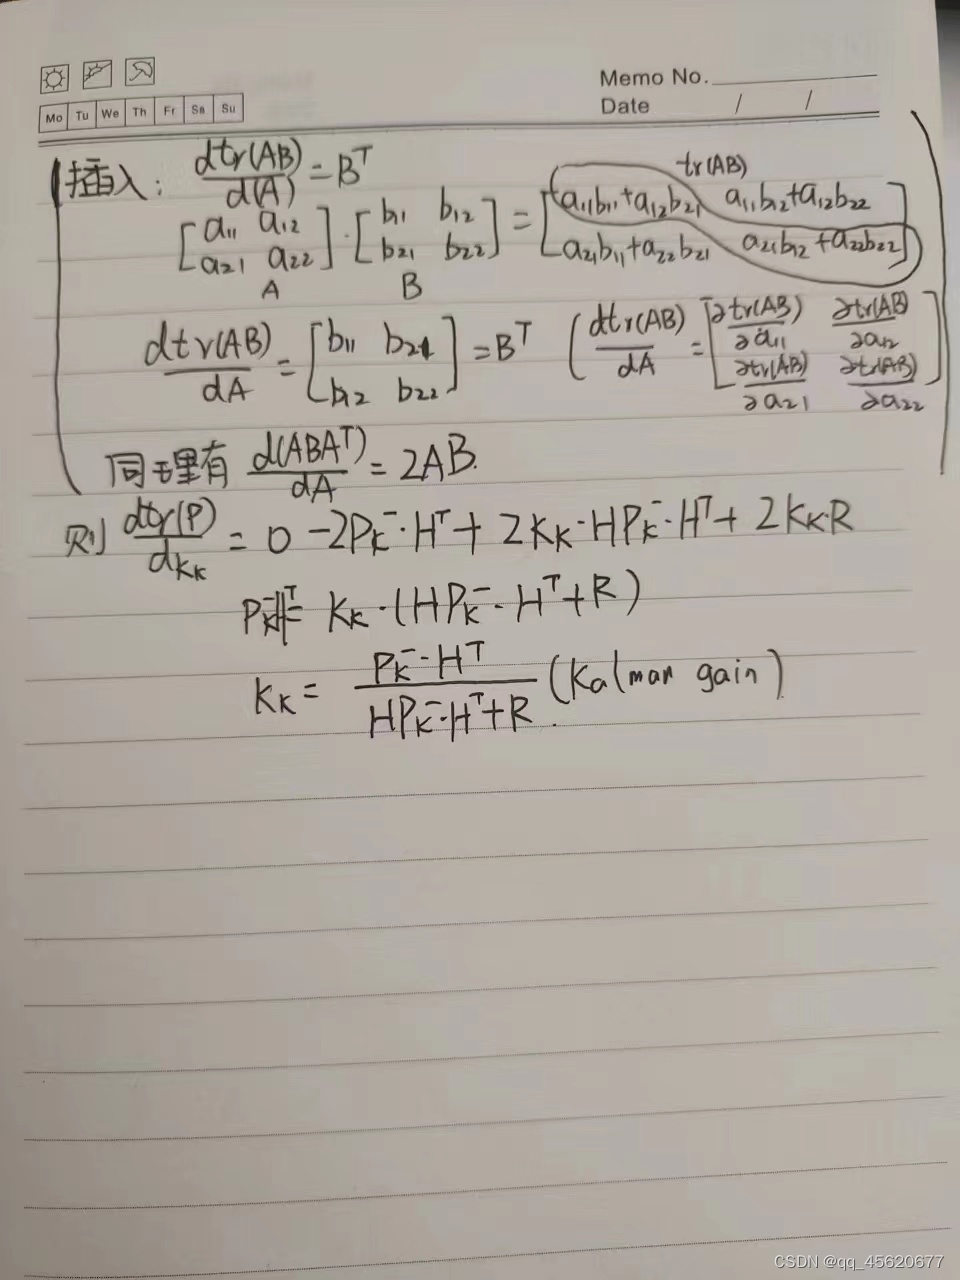 Memo No.
Mo Tu We Th Fr Sa Su
Date / /
插入: dtr(AB)/d(A) = Bᵀ
tr(AB)
[a₁₁ a₁₂; a₂₁ a₂₂] · [b₁₁ b₁₂; b₂₁ b₂₂] = [a₁₁b₁₁+a₁₂b₂₁ a₁₁b₁₂+a₁₂b₂₂; a₂₁b₁₁+a₂₂b₂₁ a₂₁b₁₂+a₂₂b₂₂]
A B
dtr(AB)/dA = [b₁₁ b₂₁; b₁₂ b₂₂] = Bᵀ (dtr(AB)/dA = [∂tr(AB)/∂a₁₁ ∂tr(AB)/∂a₁₂; ∂tr(AB)/∂a₂₁ ∂tr(AB)/∂a₂₂]
同理有 d(ABAᵀ)/dA = 2AB.
则 dtr(P)/dKₖ = 0 - 2Pₖ⁻·Hᵀ + 2Kₖ·HPₖ⁻·Hᵀ + 2Kₖ·R
Pₖ⁻Hᵀ = Kₖ·(HPₖ⁻·Hᵀ+R)
Kₖ = Pₖ⁻·Hᵀ/HPₖ⁻·Hᵀ+R (Kalman gain)
CSDN @qq_45620677